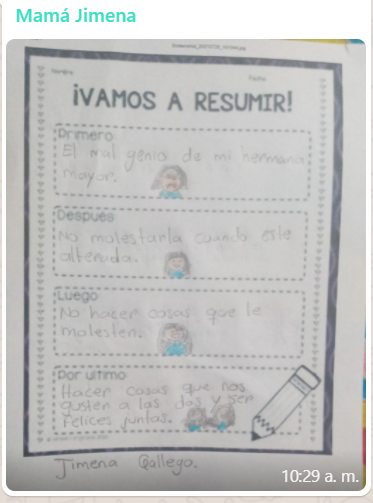 Mamá Jimena
Nombre
Fecha
¡VAMOS A RESUMIR!
Primero
El mal genio de mi hermana
mayor.
Después
No molestarla cuando este
alterada.
Luego
No hacer cosas que le
molesten.
Por ultimo
Hacer cosas que nos
gusten a las dos y ser
felices juntas.
Jimena Gallego.
10:29 a. m.